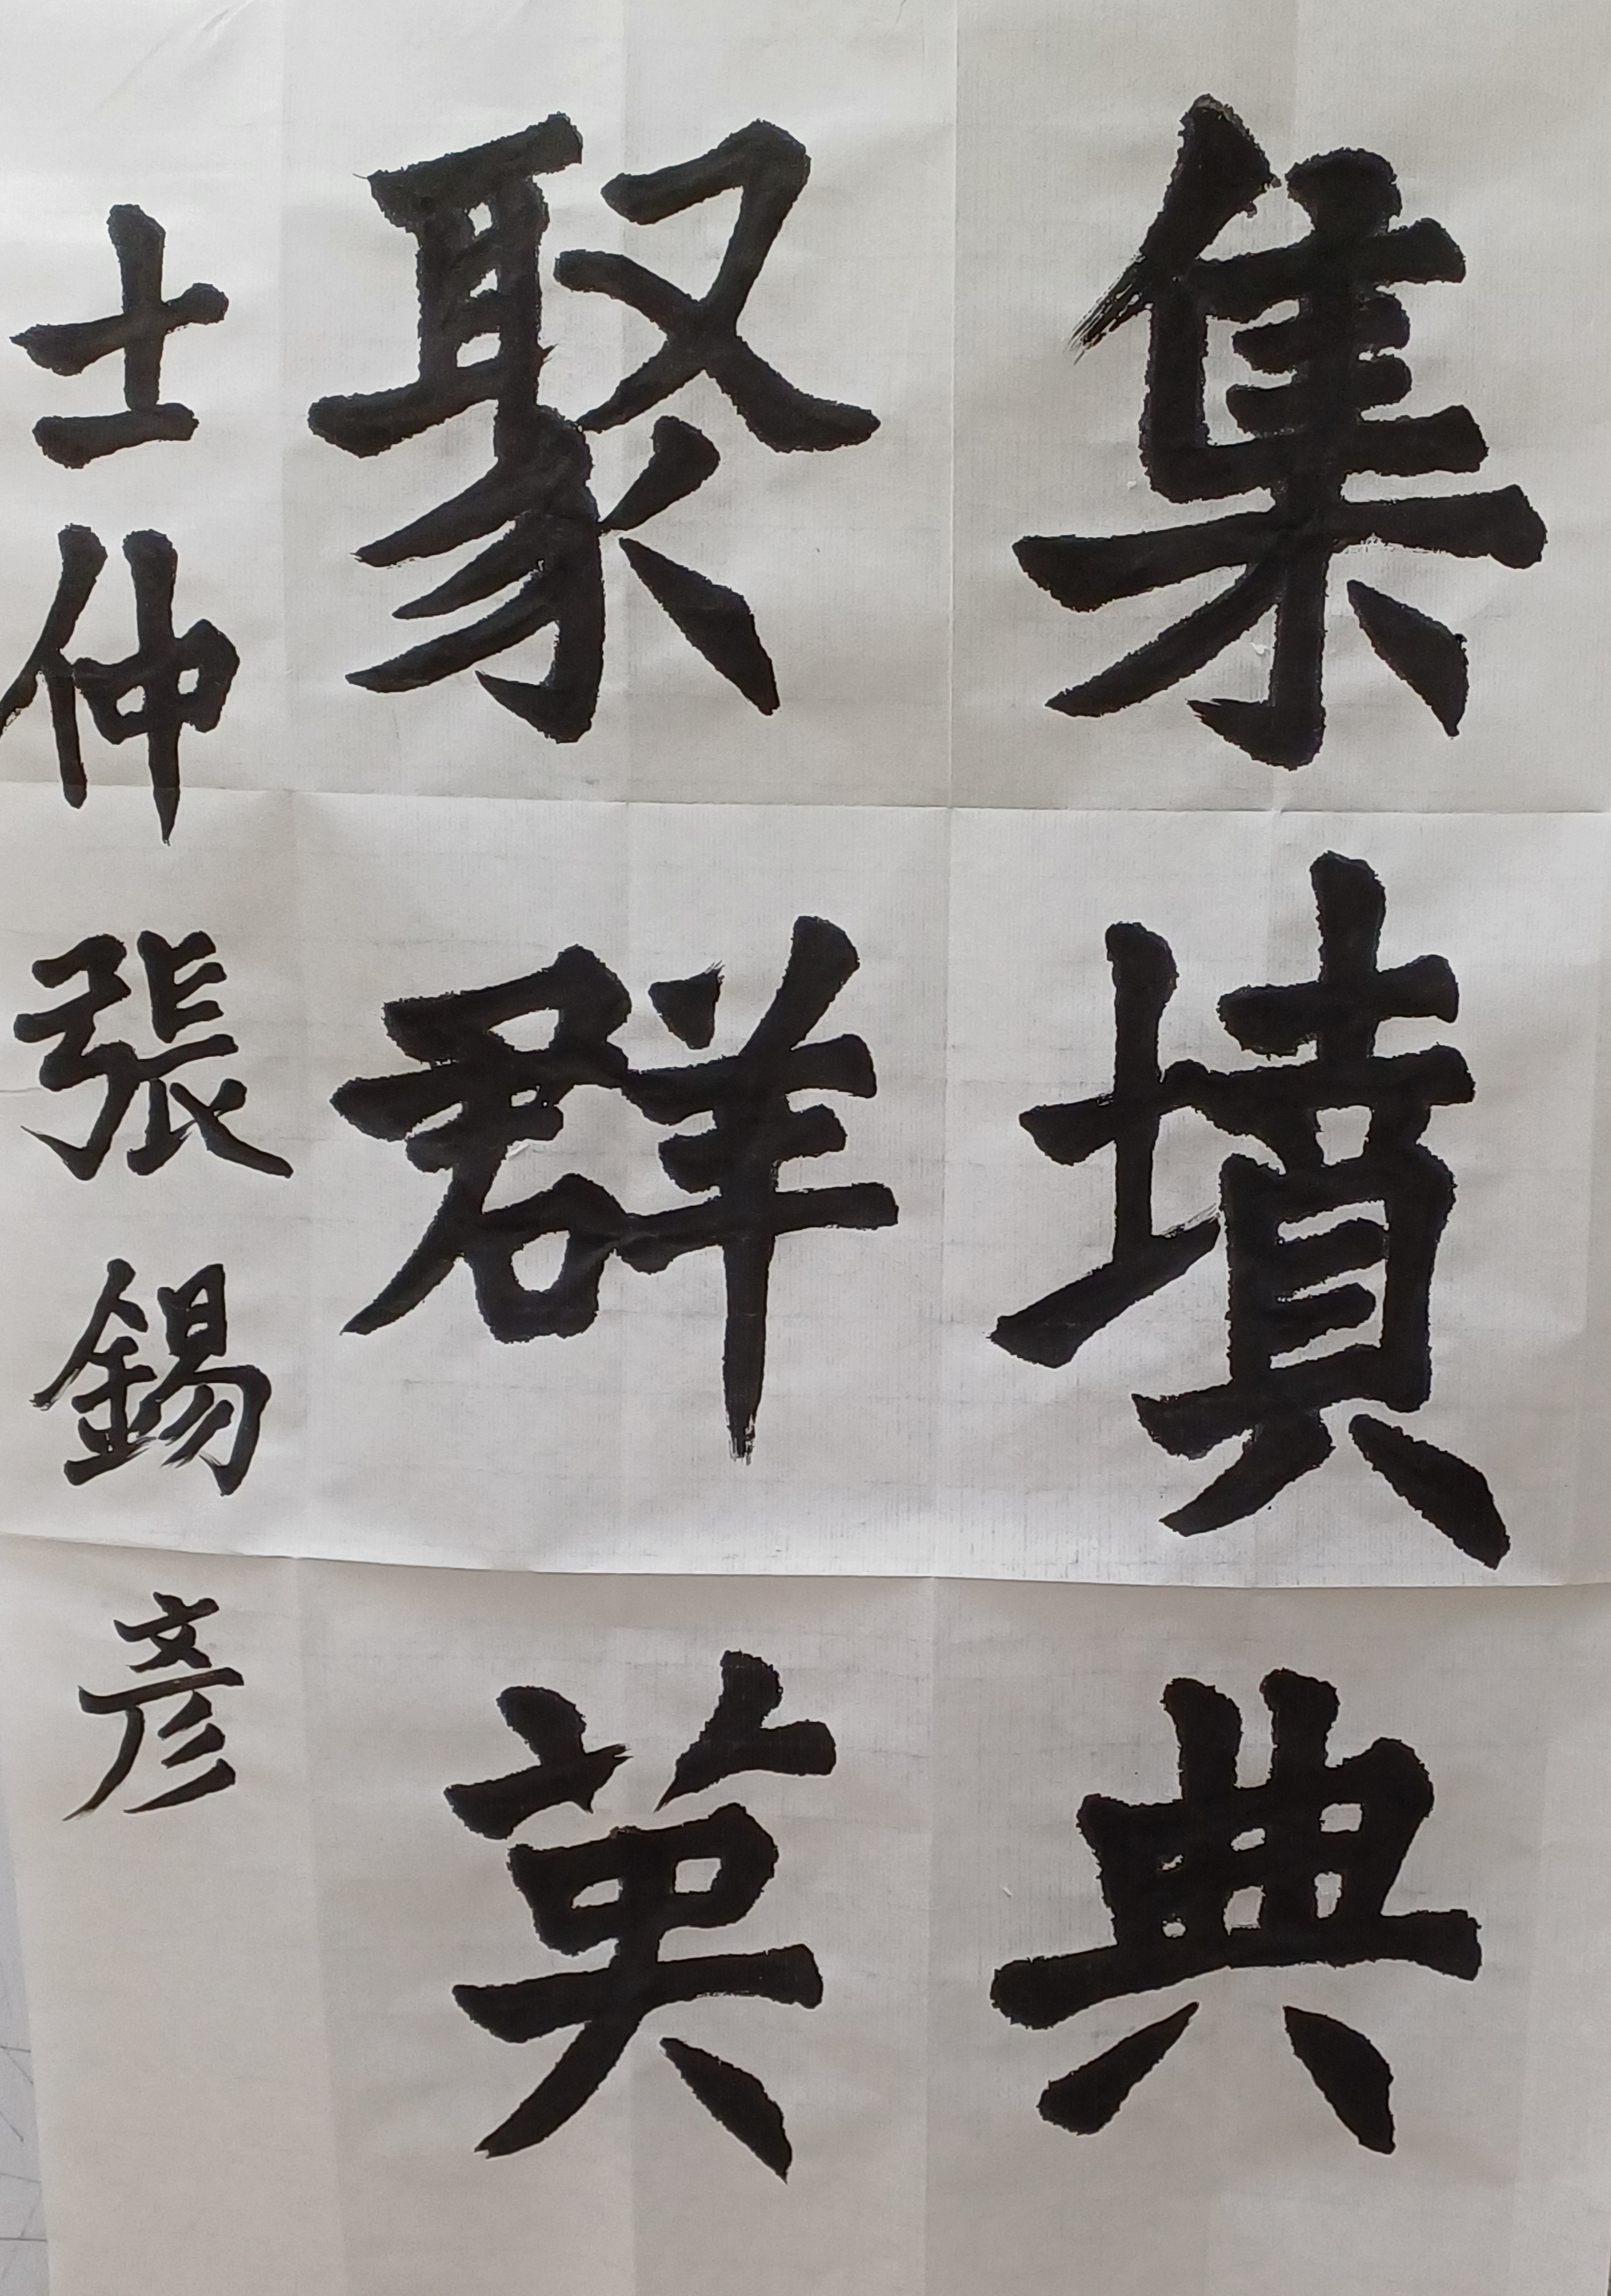 集墳典
聚群英
士仲張錫彥